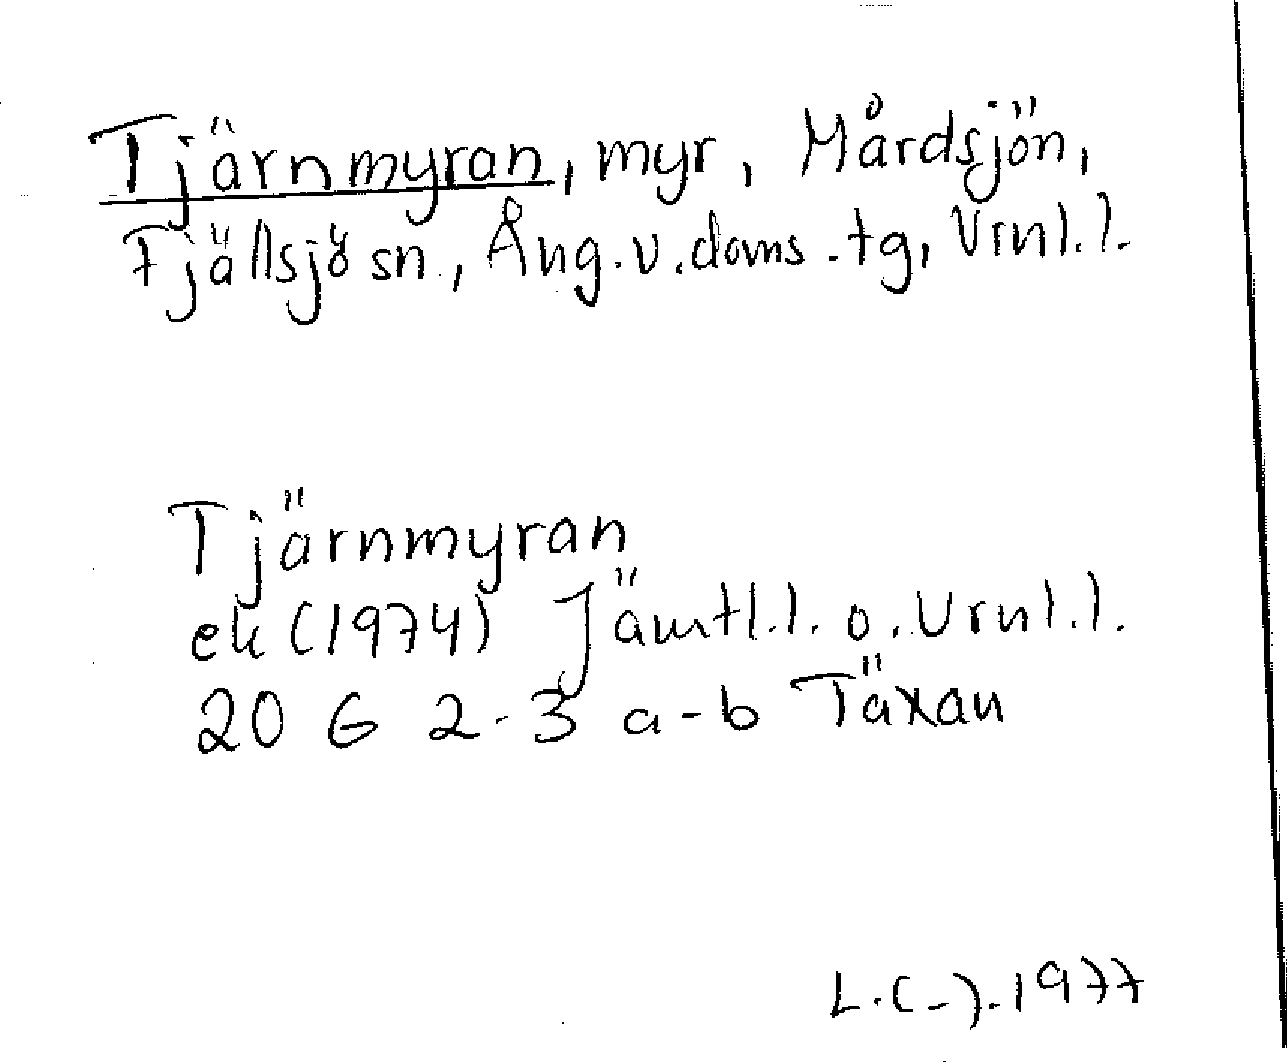 Tjärnmyran, myr, Mårdsjön,
Fjällsjö sn., Ång.v.doms.tg, Vrnl.l.
Tjärnmyran
ek (1974) Jämtl.l. o. Vrnl.l.
20 G 2-3 a-b Täxan
L.(-).1977